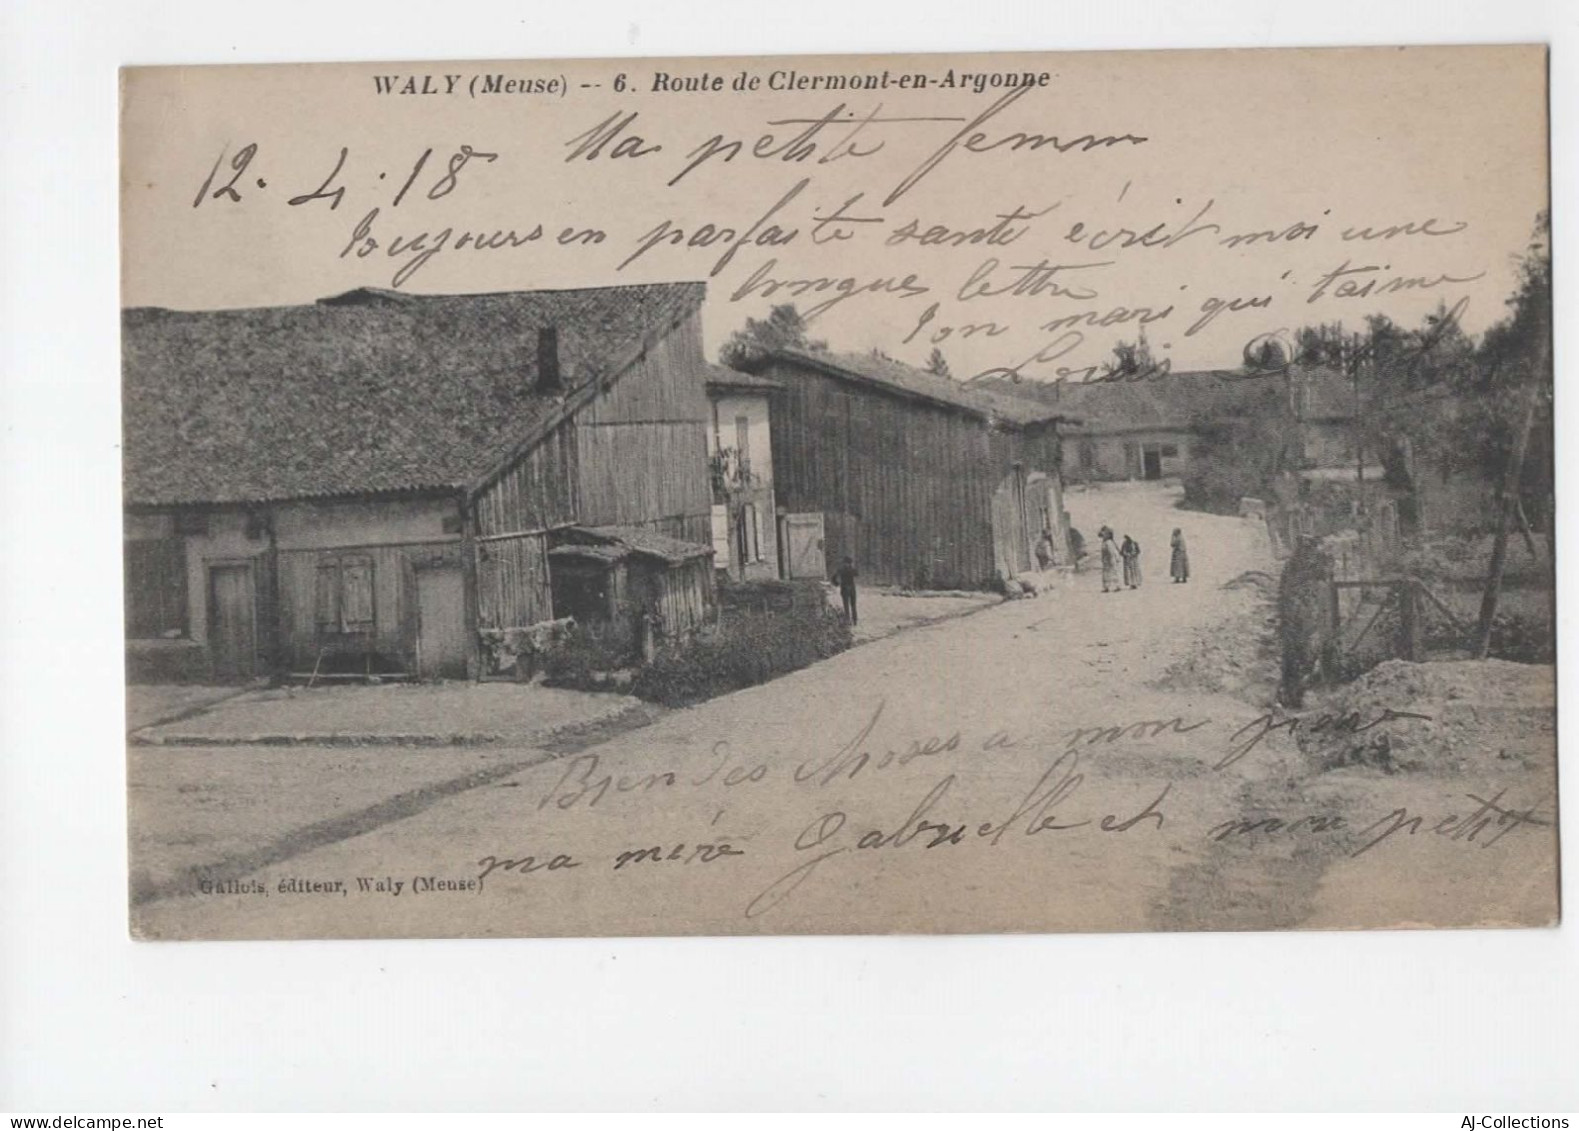 WALY (Meuse) -- 6. Route de Clermont-en-Argonne
12.4.18 Ma petite femm
Toujours en parfaite santé écrit moi une
longues lettre
Ton mari qui t'aime
Louis
Bien des choses a mon
ma mère Gabrielle et mon petit
Gallois, éditeur, Waly (Meuse)
delcampe.net
AJ-Collections